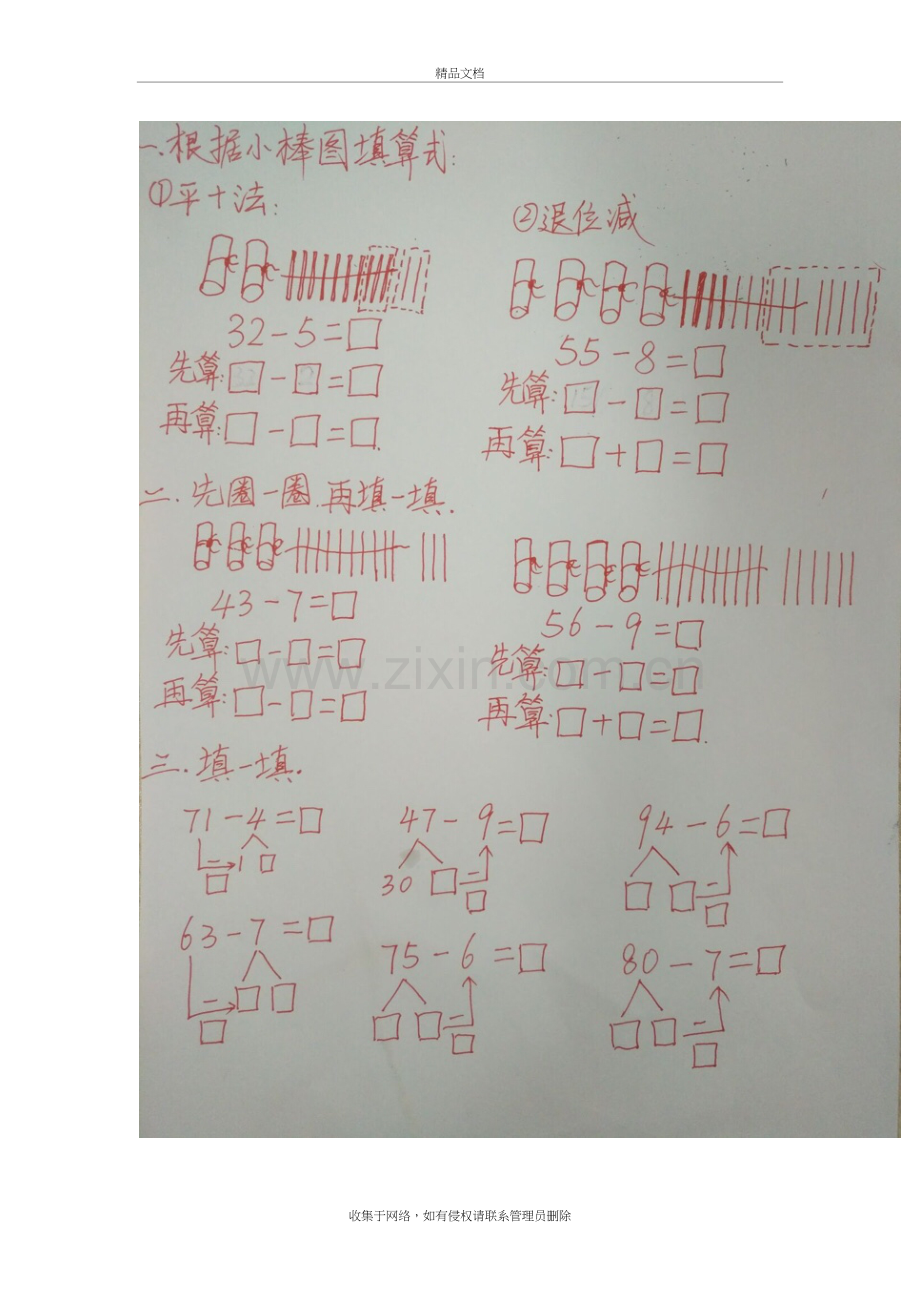 精品文档
一.根据小棒图填算式:
①平十法:
②退位减
32-5=□
先算:□-□=□
再算:□-□=□.
55-8=□
先算:□-□=□
再算:□+□=□
二.先圈一圈.再填一填.
43-7=□
先算:□-□=□
再算:□-□=□
56-9=□
先算:□-□=□
再算:□+□=□.
www.zixin.com.cn
三.填一填.
71-4=□
1 □
□
47-9=□
30 □
□
94-6=□
□ □
□
63-7=□
□ □
□
75-6=□
□ □
□
80-7=□
□ □
□
收集于网络，如有侵权请联系管理员删除